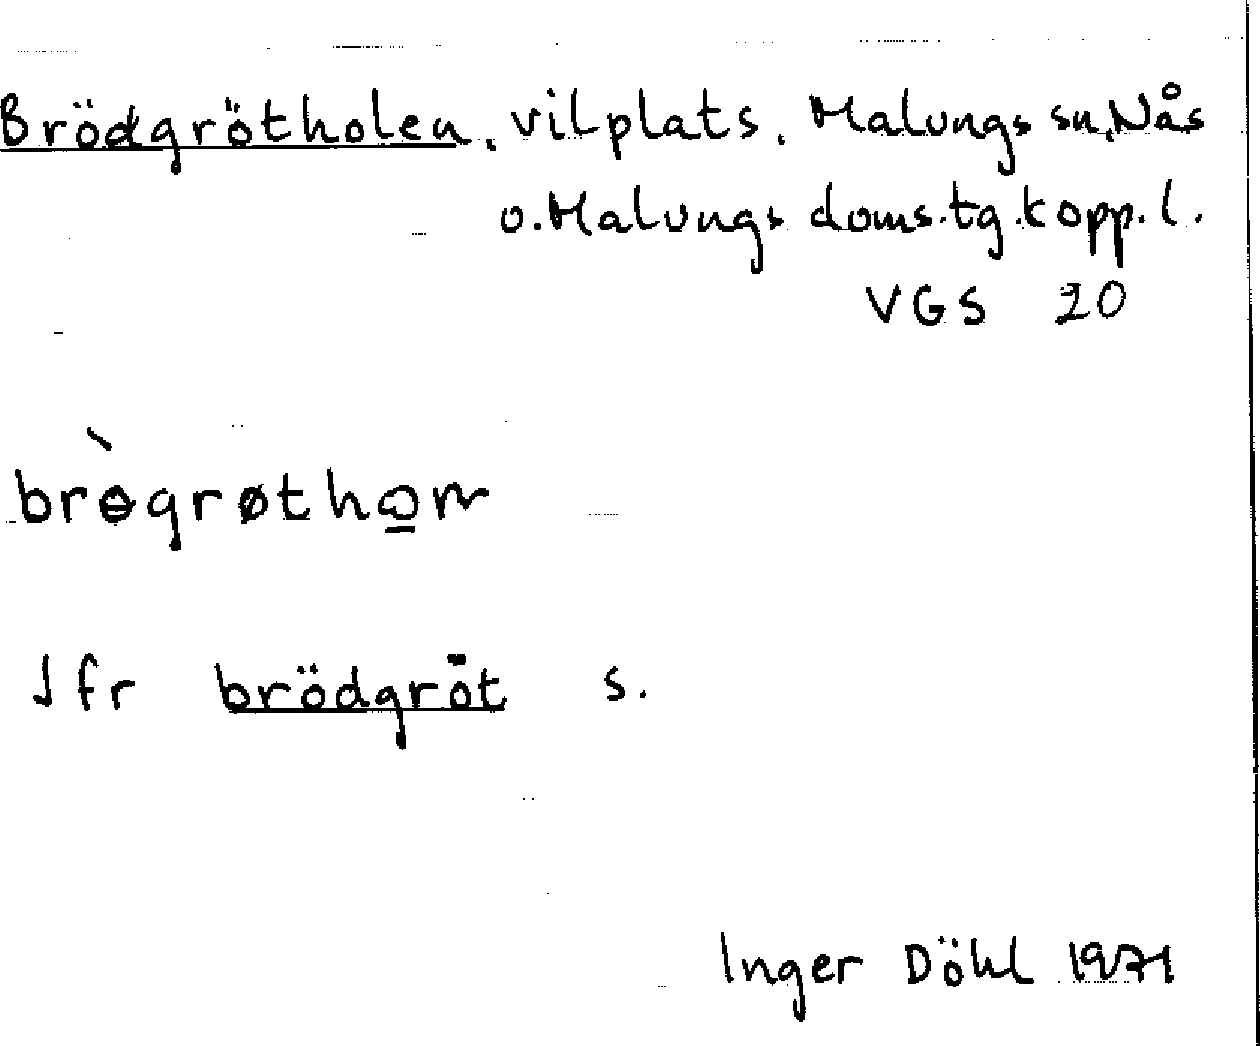 Brödgrötholen, vilplats. Malungs sn, Nås
o. Malungs doms.tg. Kopp. l.
VGS 20
Jfr brödgröt s.
Inger Döhl 1971